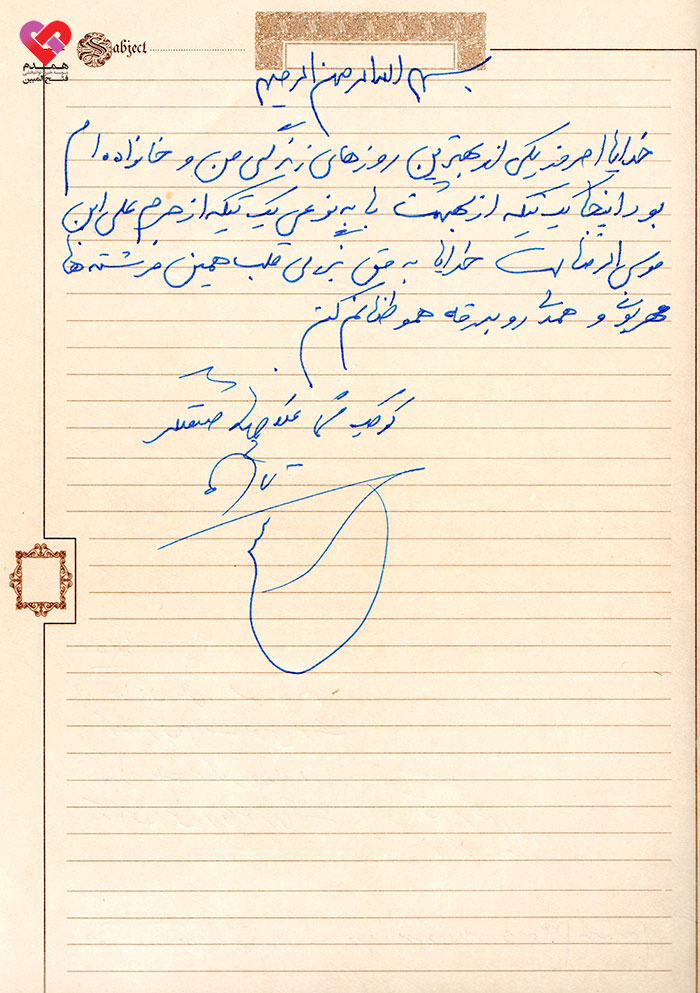 همدم
فتح المبین
Subject
بسم الله الرحمن الرحیم
خدایا امروز یکی از بهترین روزهای زندگی من و خانواده ام
بود اینجا یک تیکه از بهشت یا به نوعی یک تیکه از حرم علی ابن
موسی الرضاست خدایا به حق بزرگی قلب همین فرشته ها
مهربونی و همدلی رو بدرقه هموطنانم کن
کوچیک شما